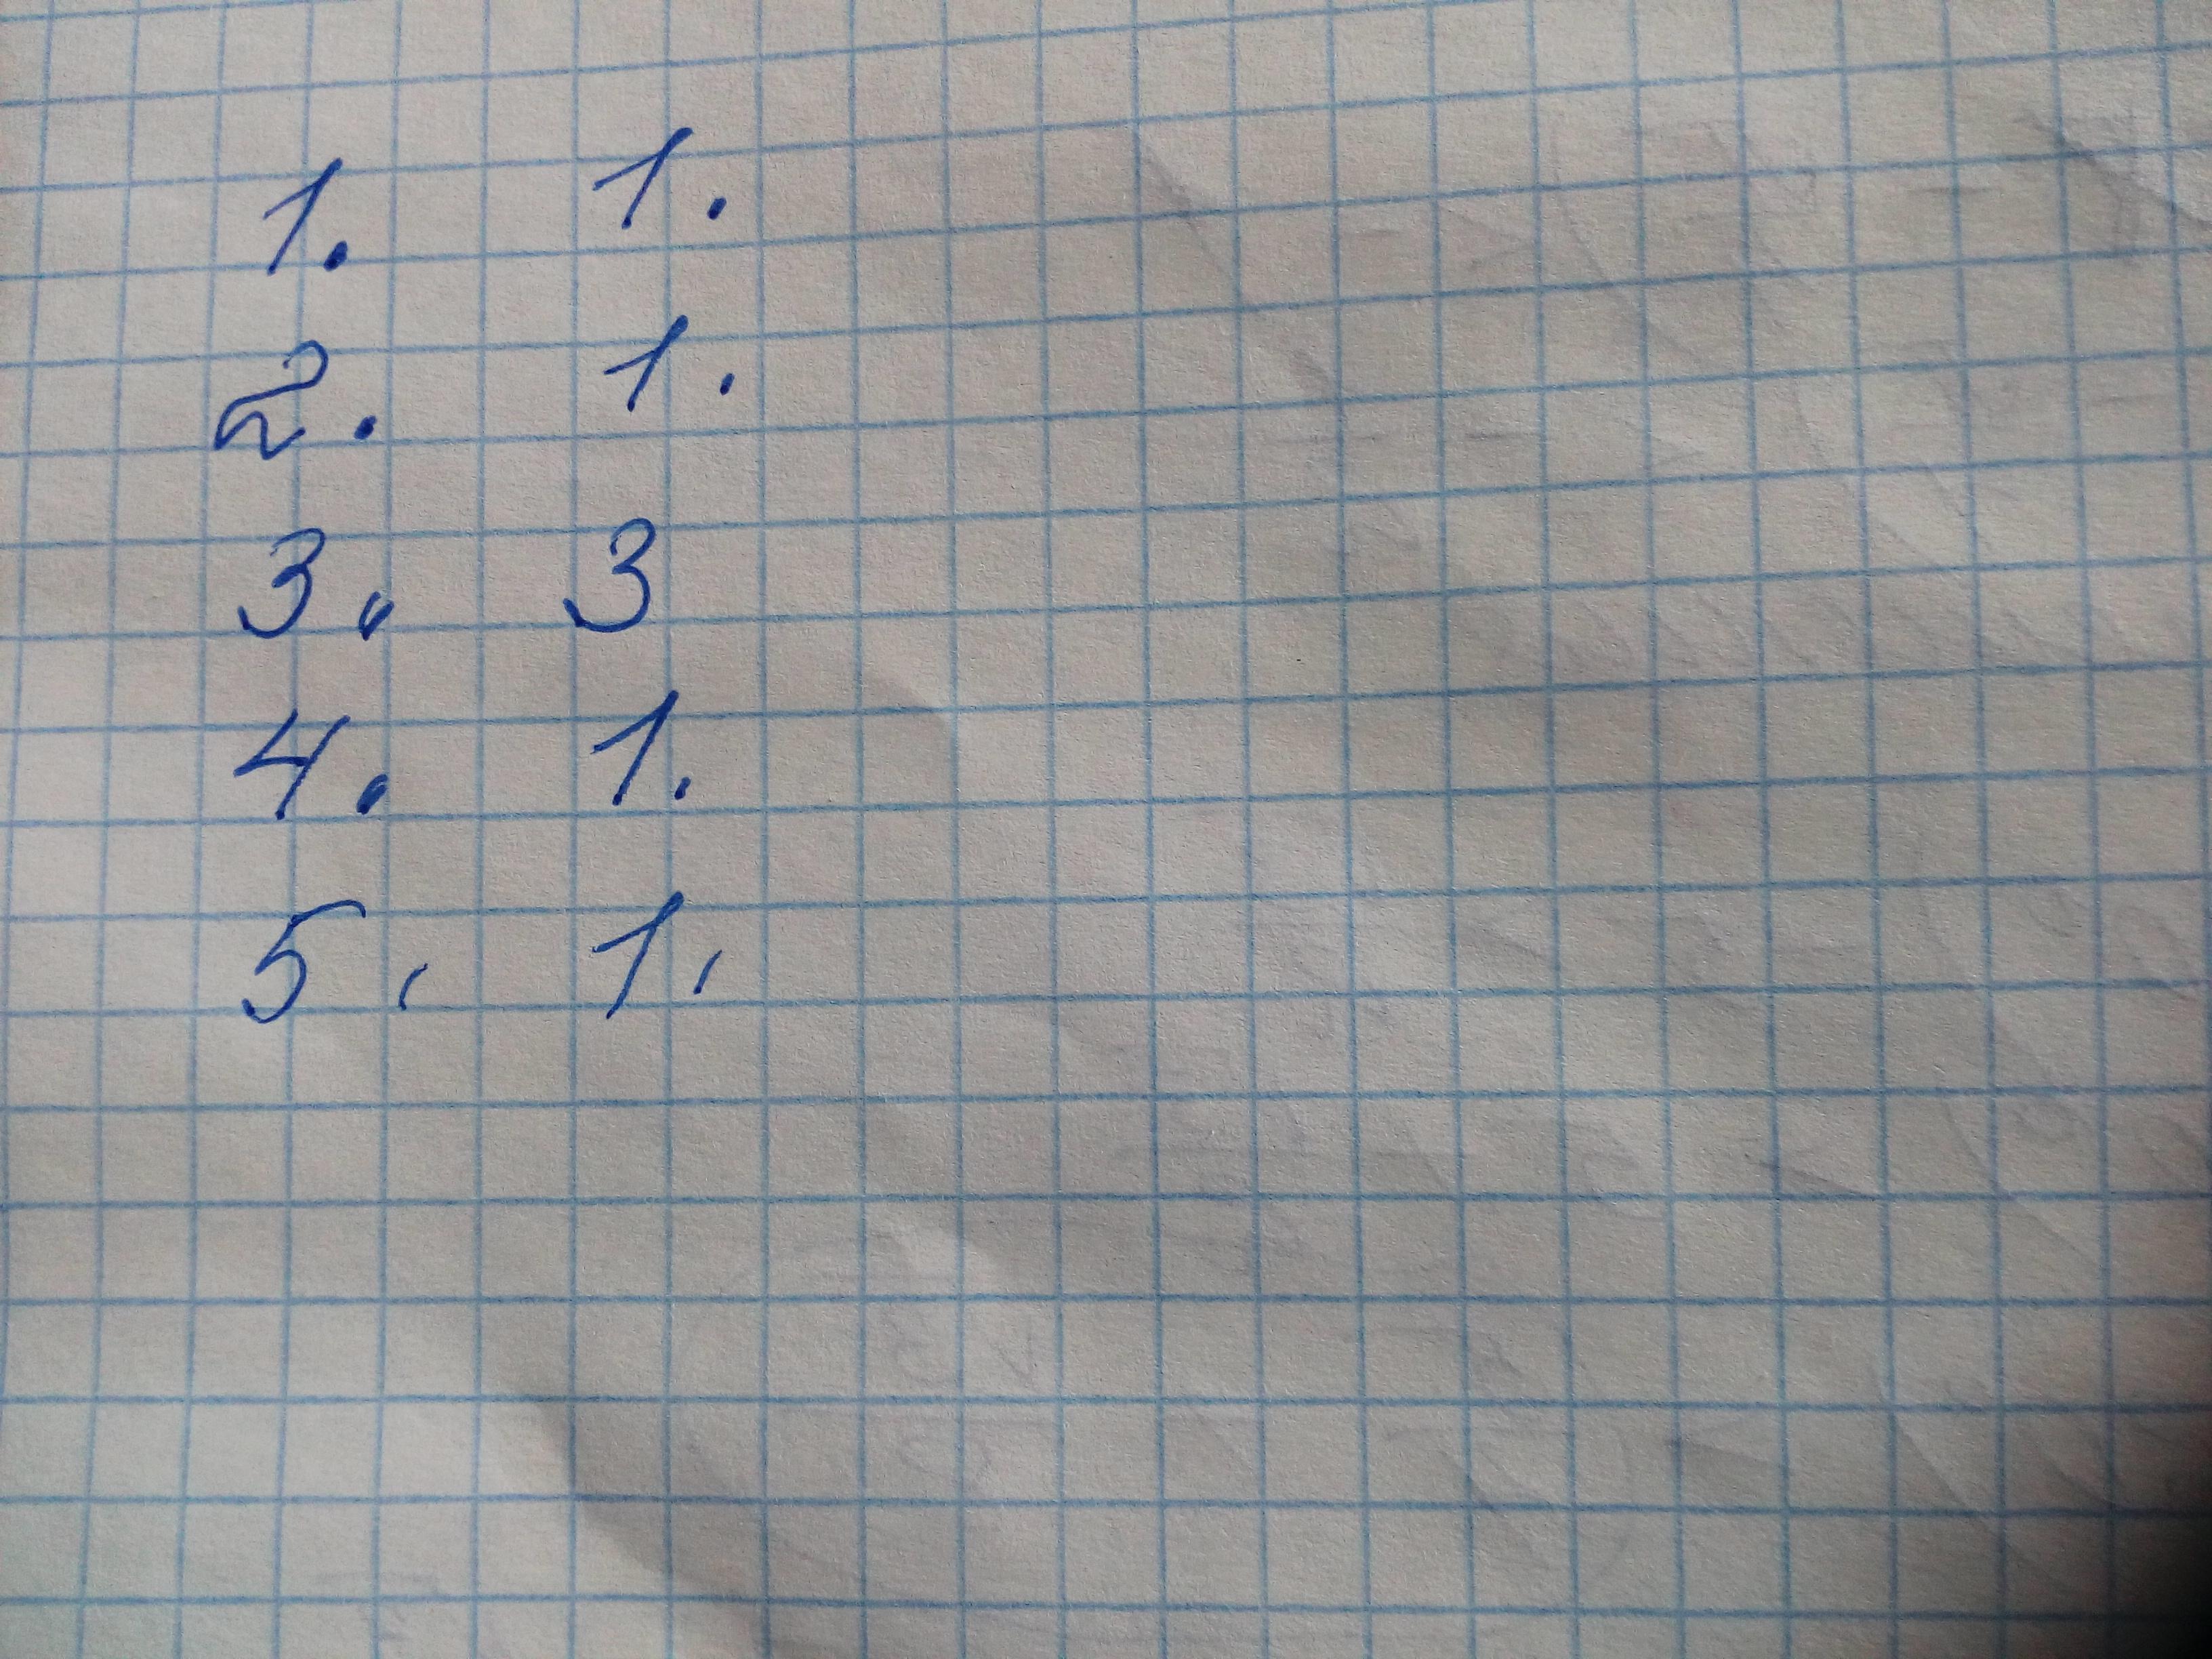 1. 1.
2. 1.
3. 3
4. 1.
5. 1.